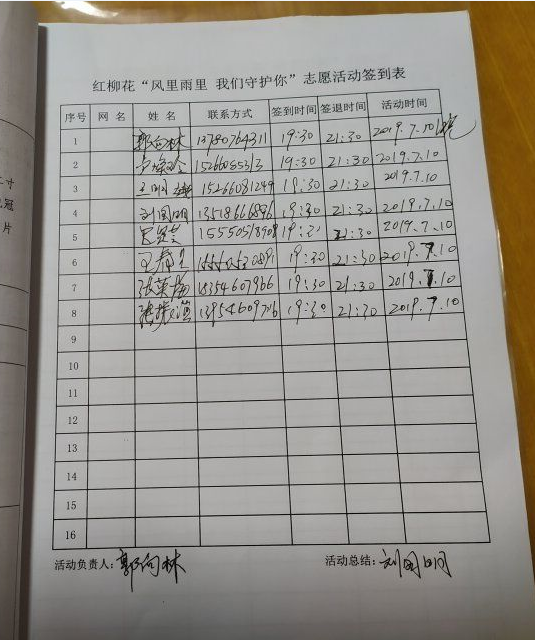 红柳花“风里雨里 我们守护你”志愿活动签到表
序号 网 名 姓 名 联系方式 签到时间 签退时间 活动时间
1 郭向林 13780764311 19:30 21:30 2019.7.10
2 19:30 21:30 2019.7.10
3 15266081249 19:30 21:30 2019.7.10
4 刘国明 13518666896 19:30 21:30 2019.7.10
5 21:30 2019.7.10
6 19:30 21:30 2019.7.10
7 张荣梅 18354607966 19:30 21:30 2019.7.10
8 13954609716 19:30 21:30 2019.7.10
9
10
11
12
13
14
15
16
活动负责人：郭向林 活动总结：刘国明